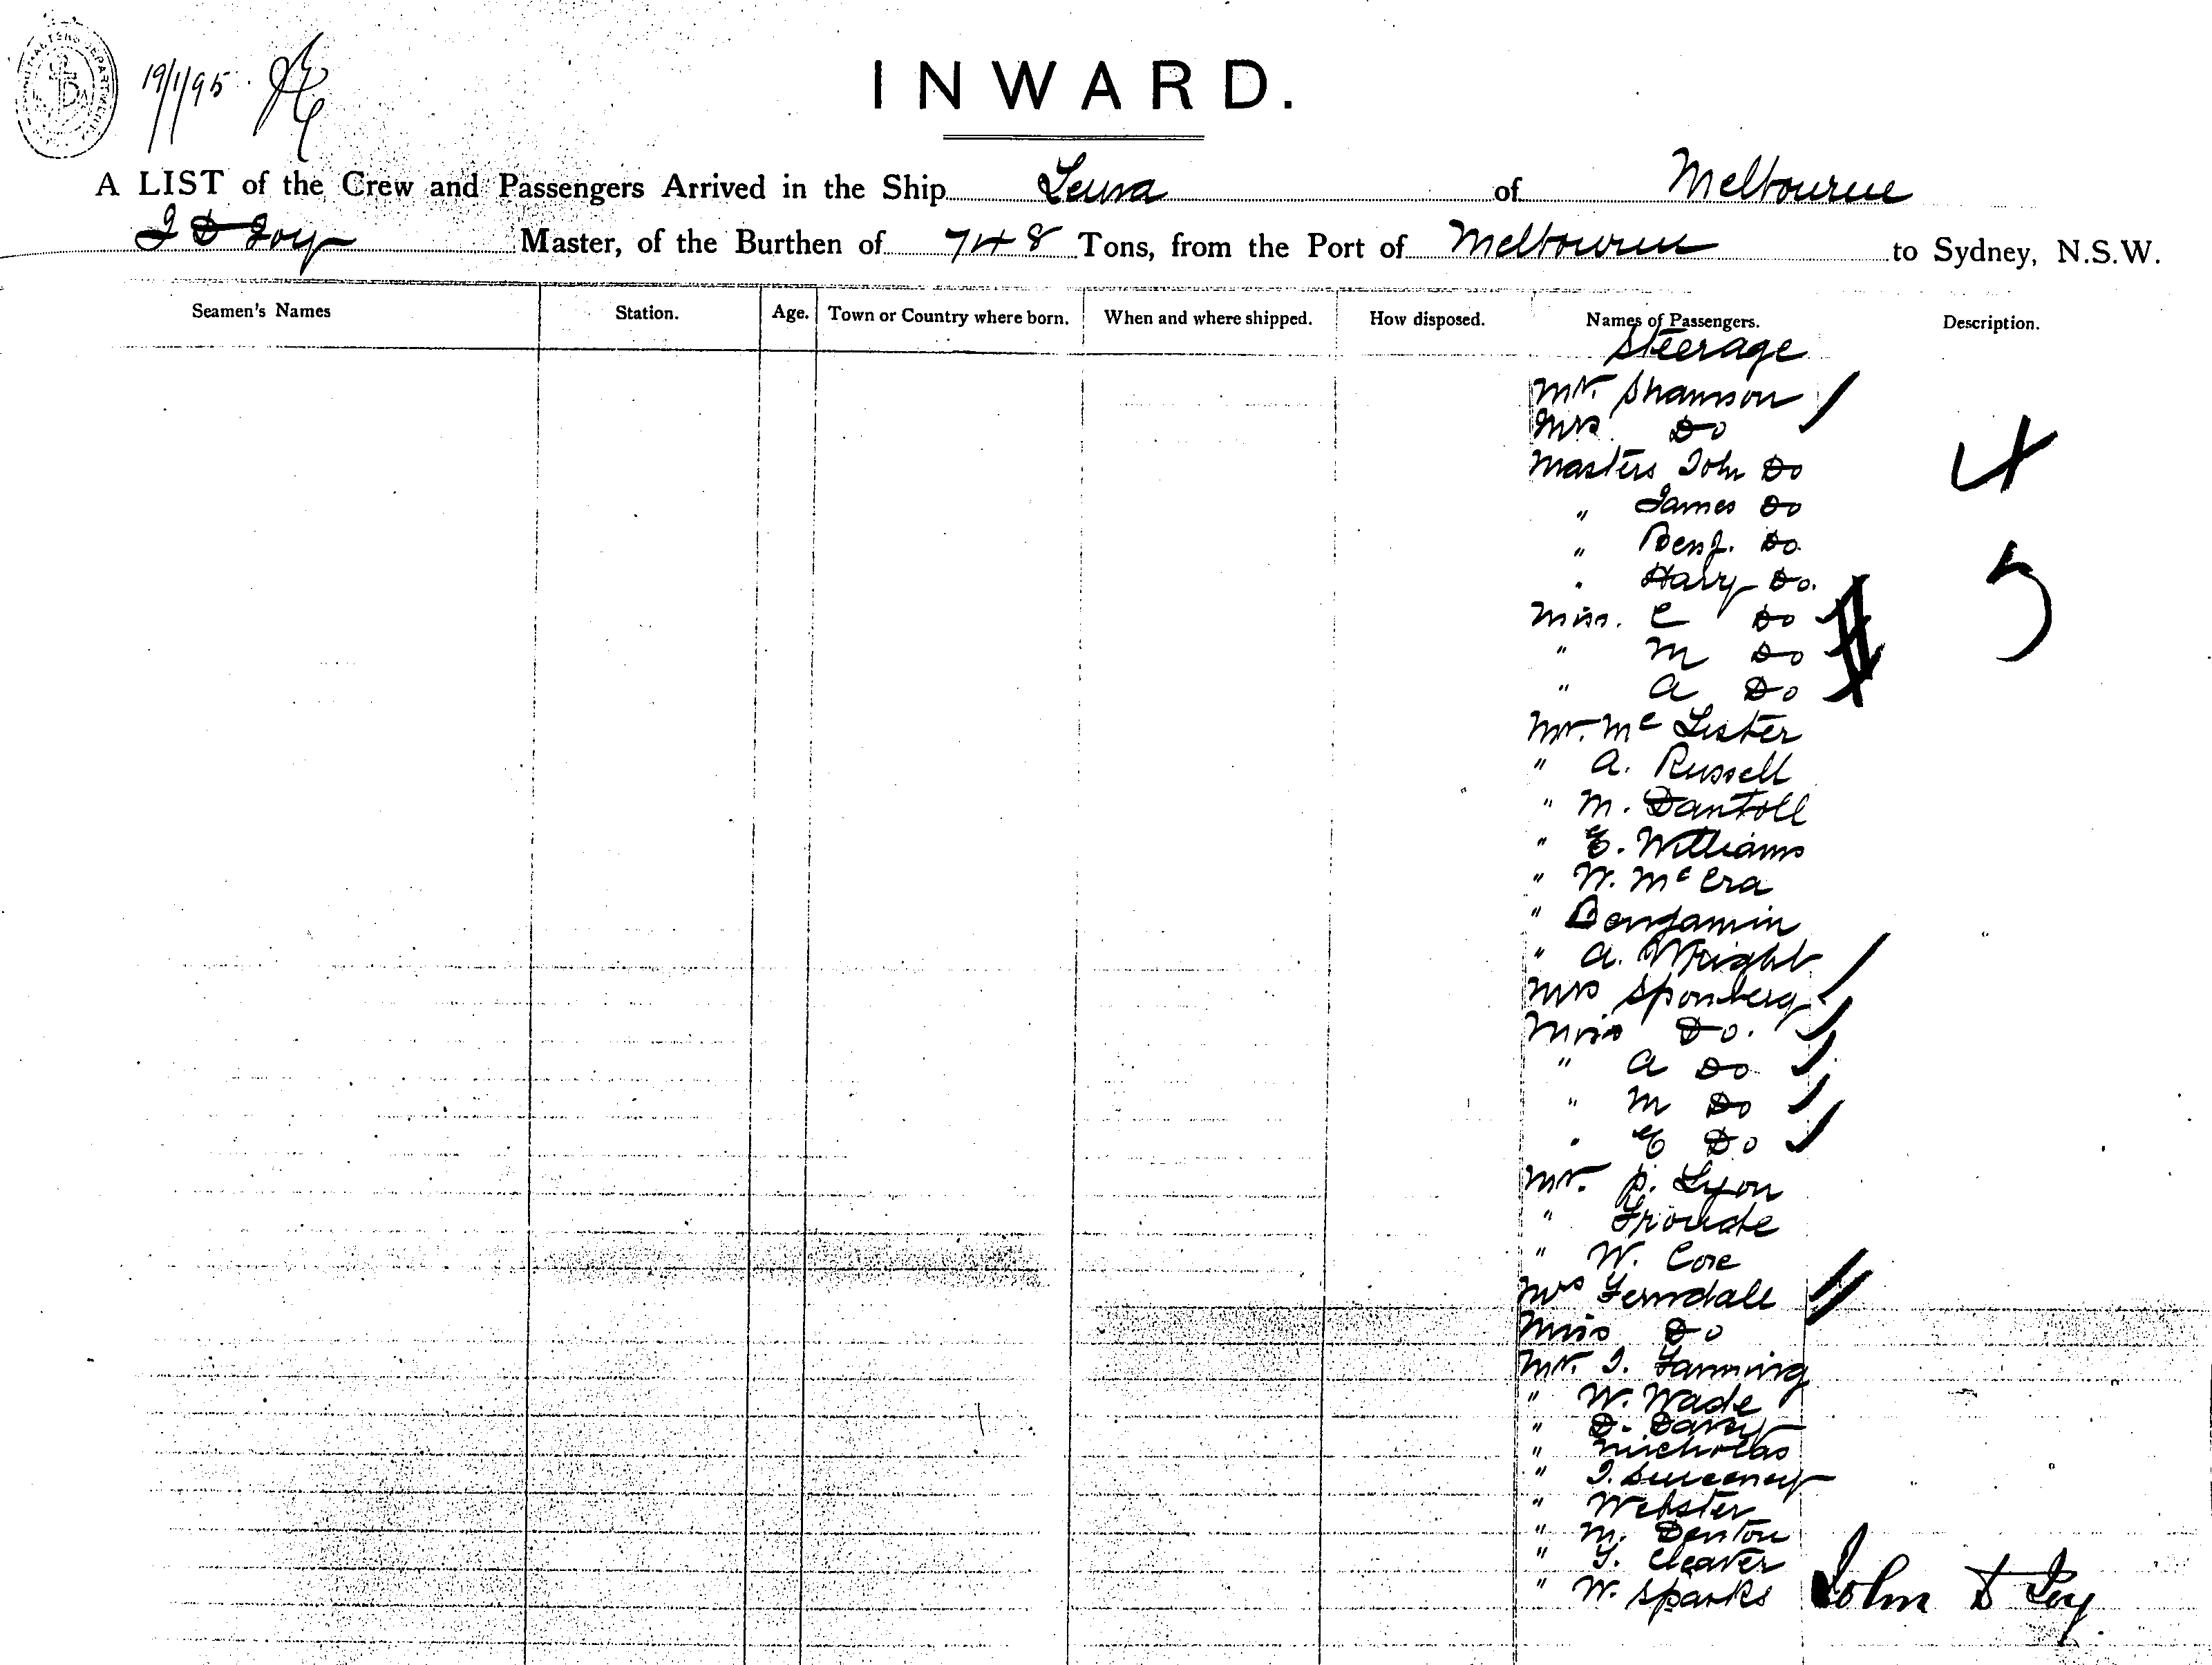 19/1/95
INWARD.
A LIST of the Crew and Passengers Arrived in the Ship Leura of Melbourne
J D Joy Master, of the Burthen of 748 Tons, from the Port of Melbourne to Sydney, N.S.W.
Seamen's Names Station. Age. Town or Country where born. When and where shipped. How disposed. Names of Passengers. Description.
Steerage
Mr. Shannon
Mrs Do
Masters John Do 4
" James Do
" Benj. Do.
" Harry Do. 5
Miss. C Do
" M Do
" A Do
Mr. Mc Lister
" A. Russell
" M. Dantoll
" E. Williams
" W. Mc Cra
" Benjamin
" A. Wright
Mrs Sponberg
Miss Do.
" A Do
" M Do
" E Do
Mr. P. Lyon
" Froude
" W. Core
Mrs Ferndale
Miss Do
Mr. J. Fanning
" W. Wade
" D. Davy
" Nicholas
" J. Sweeney
" Webster
" M. Denton
" Y. Cleaver
" W. Sparks John D Joy